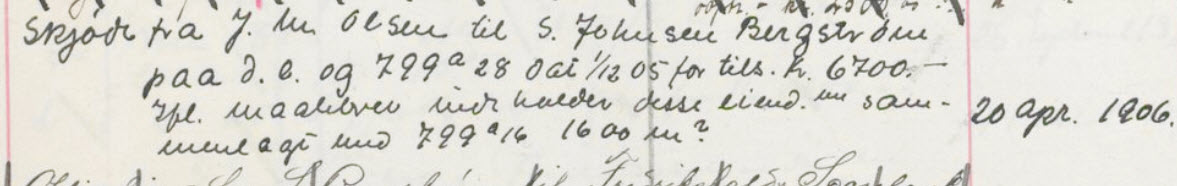 Skjøde fra J. M. Olsen til S. Johnsen Bergstrøm
paa d. e. og 799ᵃ 28 dat 1/12 05 for tils. kr. 6700.-
Ifl. maalebrev indeholder disse eiend. nu sam-
menlagt med 799ᵃ 16 1600 m² 20 apr. 1906.
til